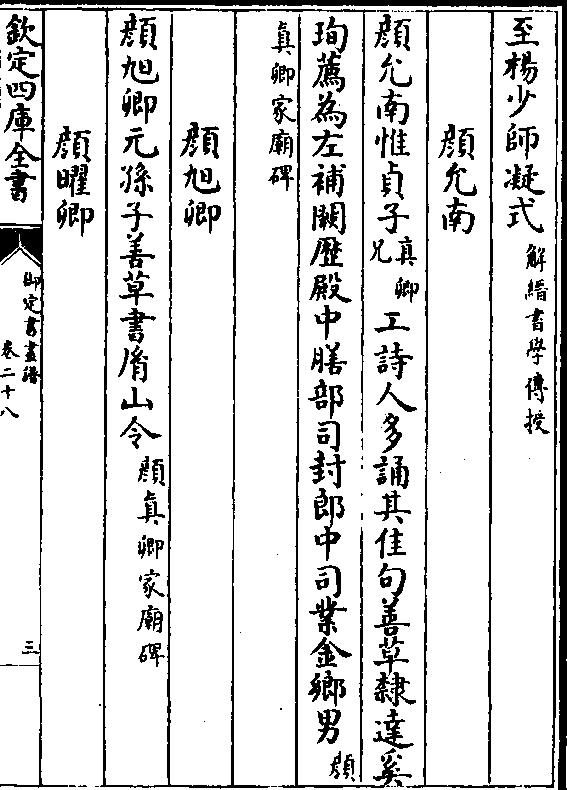 至楊少師凝式解縉書學傳授
顔允南
顔允南惟貞子真卿兄工詩人多誦其佳句善草隸達奚
珣薦為左補闕歴殿中膳部司封郎中司業金鄉男顔
真卿家廟碑
顔旭卿
顔旭卿元孫子善草書胥山令顔真卿家廟碑
顔曜卿
欽定四庫全書
御定書畫譜
卷二十八
三